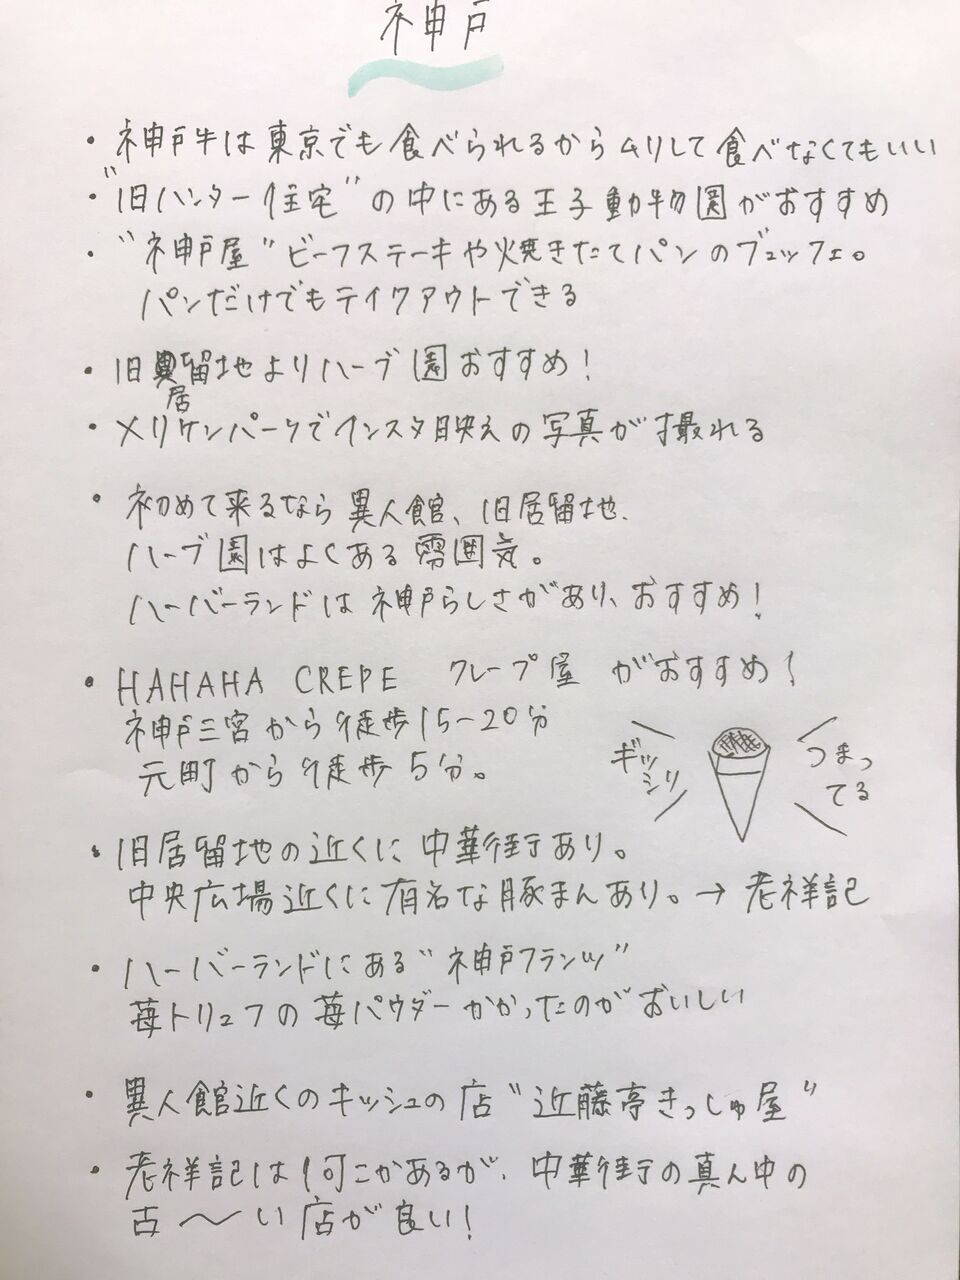 神戸
・神戸牛は東京でも食べられるからムリして食べなくてもいい
・"旧ハンター住宅"の中にある王子動物園がおすすめ
・"神戸屋"ビーフステーキや焼きたてパンのブュッフェ。
パンだけでもテイクアウトできる
・旧居留地よりハーブ園おすすめ!
・メリケンパークでインスタ映えの写真が撮れる
・初めて来るなら異人館、旧居留地、
ハーブ園はよくある雰囲気。
ハーバーランドは神戸らしさがあり、おすすめ!
・HAHAHA CREPE クレープ屋 がおすすめ!
神戸三宮から徒歩15-20分
元町から徒歩5分。
ギッシリ
つまってる
・旧居留地の近くに中華街あり。
中央広場近くに有名な豚まんあり。→ 老祥記
・ハーバーランドにある"神戸フランツ"
苺トリュフの苺パウダーかかったのがおいしい
・異人館近くのキッシュの店"近藤亭きっしゅ屋"
・老祥記は何こかあるが、中華街の真ん中の
古〜い店が良い!